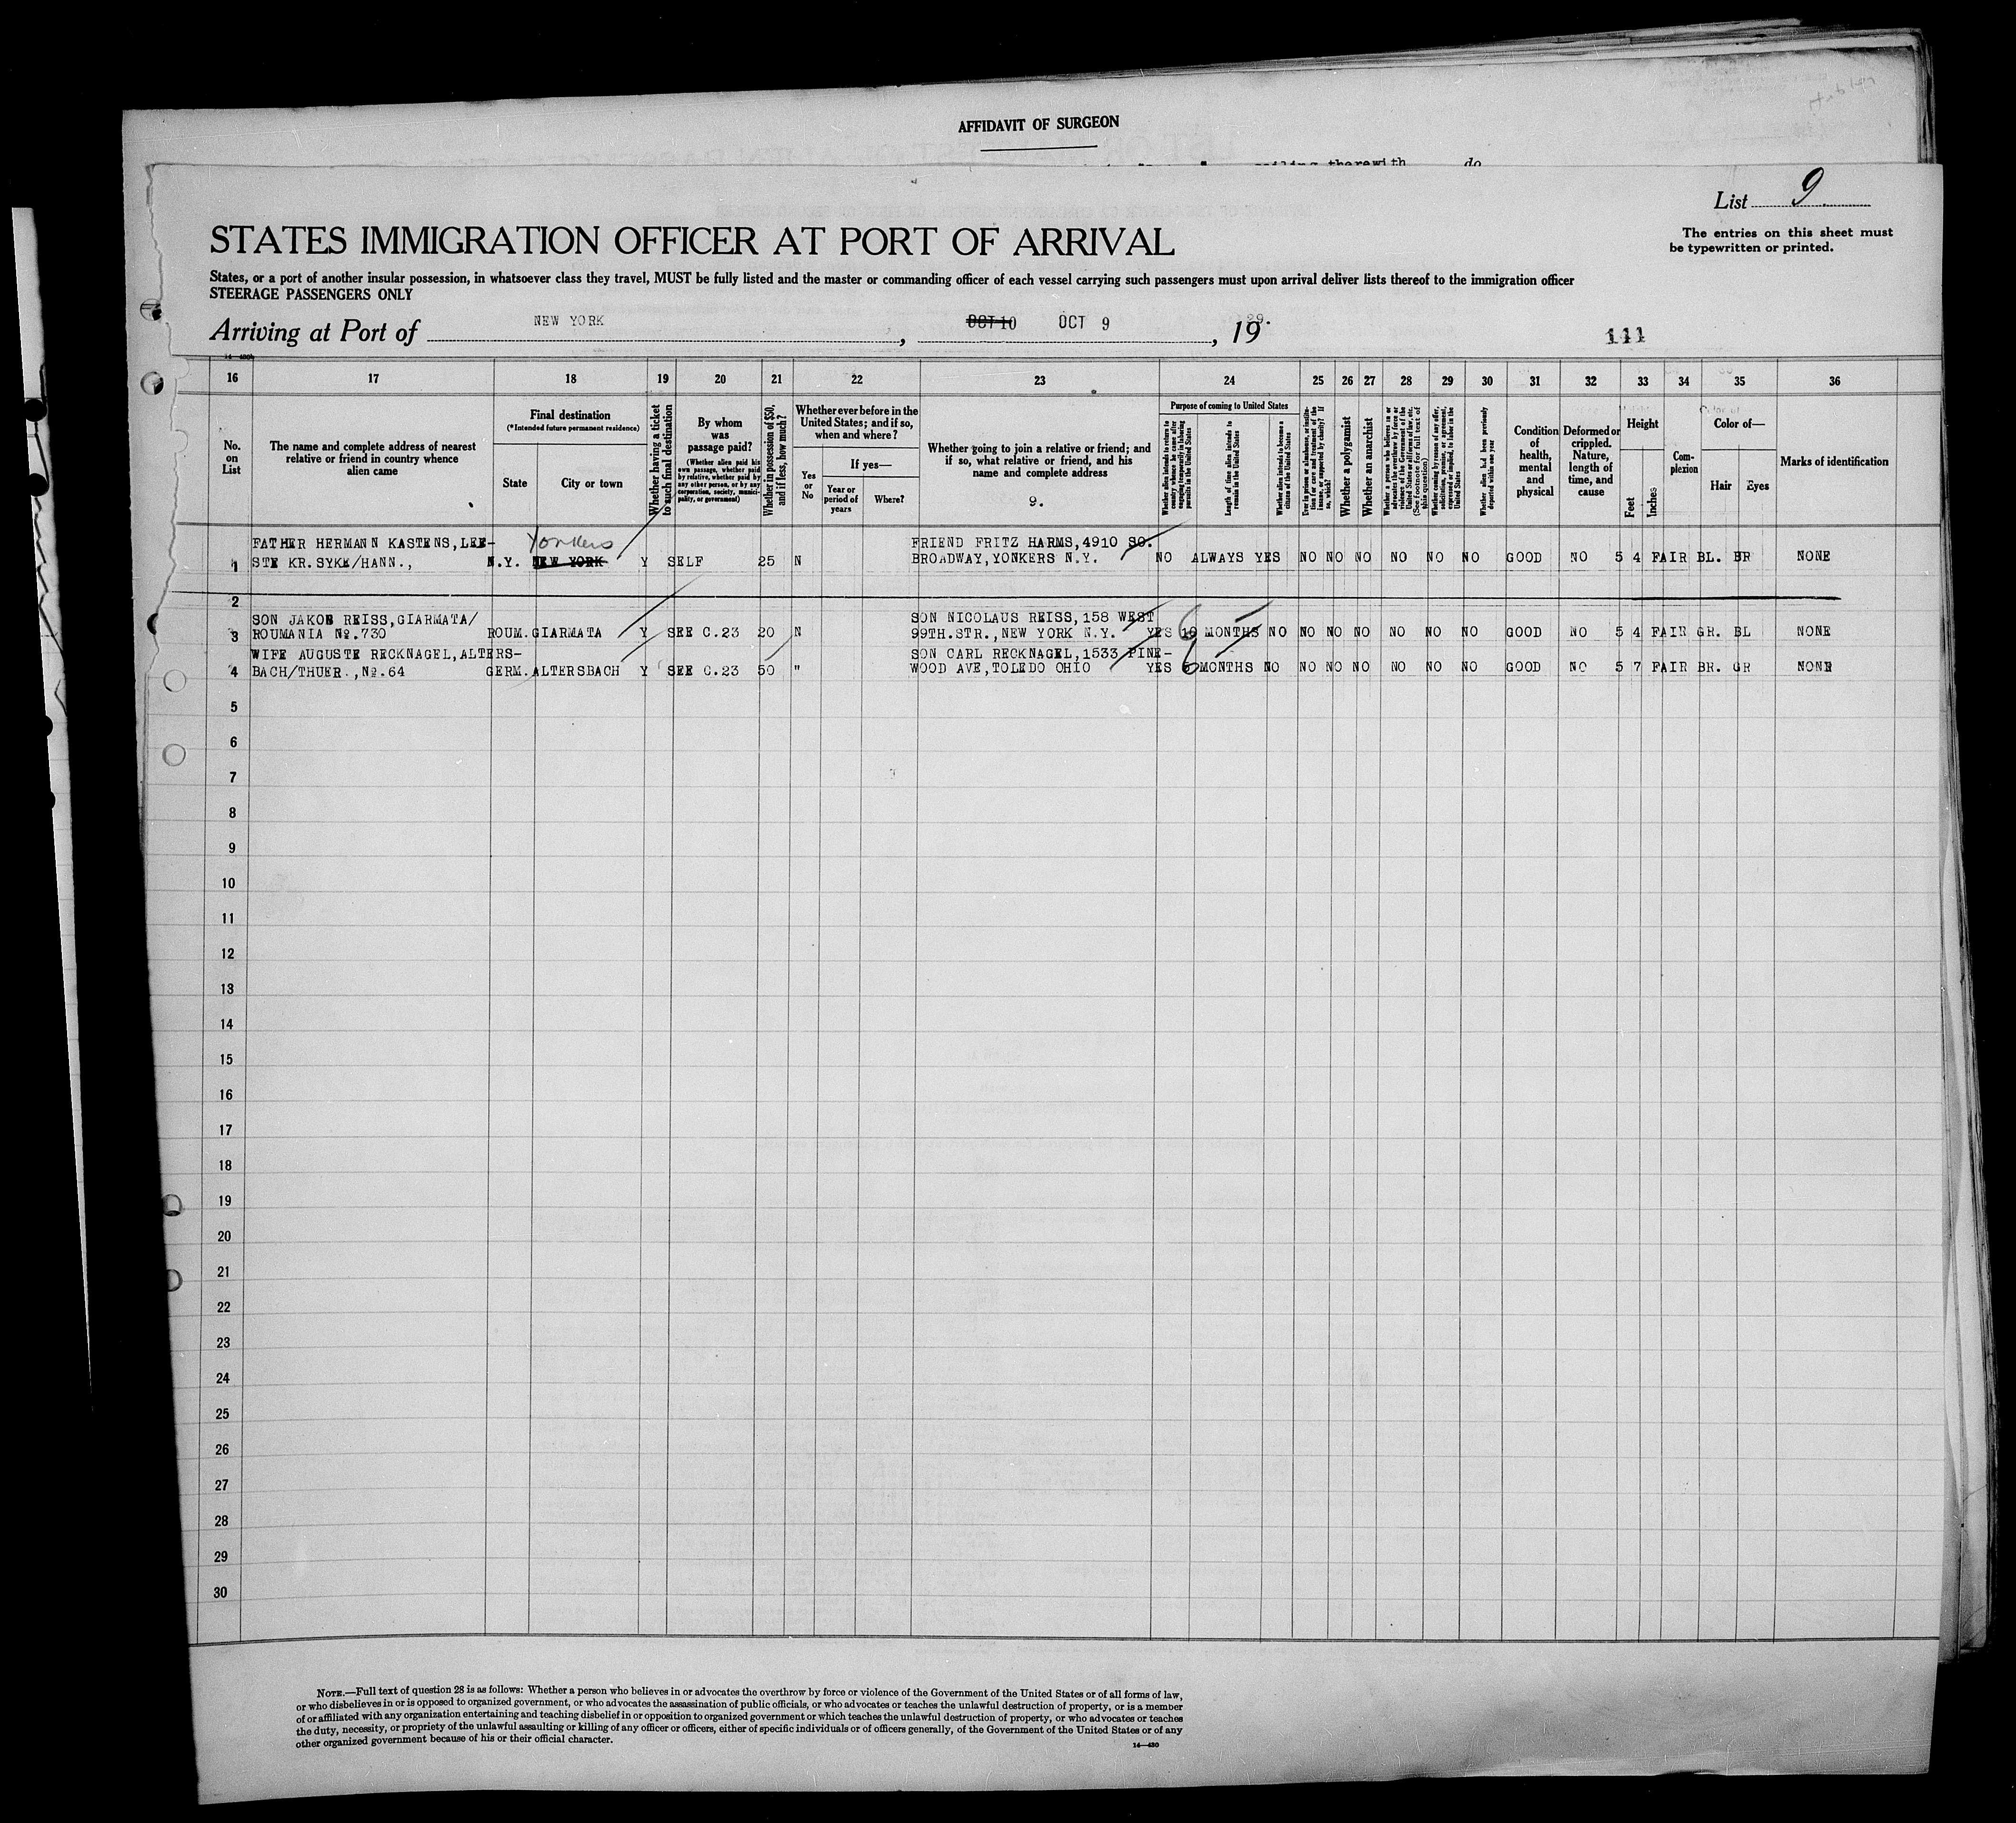 AFFIDAVIT OF SURGEON
sailing therewith do
List 9
STATES IMMIGRATION OFFICER AT PORT OF ARRIVAL
The entries on this sheet must
be typewritten or printed.
States, or a port of another insular possession, in whatsoever class they travel, MUST be fully listed and the master or commanding officer of each vessel carrying such passengers must upon arrival deliver lists thereof to the immigration officer
STEERAGE PASSENGERS ONLY
Arriving at Port of NEW YORK, OCT 10 OCT 9, 1929.
111
16 17 18 19 20 21 22 23 24 25 26 27 28 29 30 31 32 33 34 35 36
No.
on
List
The name and complete address of nearest
relative or friend in country whence
alien came
Final destination
(*Intended future permanent residence)
State
City or town
Whether having a ticket
to such final destination
By whom
was
passage paid?
(Whether alien paid his
own passage, whether paid
by relative, whether paid by
any other person, or by any
corporation, society, munici-
pality, or government)
Whether in possession of $50,
and if less, how much?
Whether ever before in the
United States; and if so,
when and where?
Yes
or
No
If yes—
Year or
period of
years
Where?
Whether going to join a relative or friend; and
if so, what relative or friend, and his
name and complete address
9.
Purpose of coming to United States
Whether alien intends to return to
country whence he came after
engaging temporarily in laboring
pursuits in the United States
Length of time alien intends to
remain in the United States
Whether alien intends to become a
citizen of the United States
Ever in prison or almshouse, or institu-
tion for care and treatment of the
insane, or supported by charity? If
so, which?
Whether a polygamist
Whether an anarchist
Whether a person who believes in or
advocates the overthrow by force or
violence of the Government of the
United States or all forms of law, etc.
(See footnote for full text of
this question)
Whether coming by reason of any offer,
solicitation, promise, or agreement,
expressed or implied, to labor in the
United States
Whether alien had been previously
deported within one year
Condition
of
health,
mental
and
physical
Deformed or
crippled.
Nature,
length of
time, and
cause
Height
Feet
Inches
Com-
plexion
Color of—
Hair
Eyes
Marks of identification
FATHER HERMANN KASTENS, LEE- Yonkers FRIEND FRITZ HARMS, 4910 SO.
1 STE KR.SYKE/HANN., N.Y. NEW YORK Y SELF 25 N BROADWAY, YONKERS N.Y. NO ALWAYS YES NO NO NO NO NO NO GOOD NO 5 4 FAIR BL. BR NONE
2
SON JAKOB REISS, GIARMATA/ SON NICOLAUS REISS, 158 WEST 6
3 ROUMANIA No.730 ROUM. GIARMATA Y SEE C.23 20 N 99TH.STR., NEW YORK N.Y. YES 10 MONTHS NO NO NO NO NO NO NO GOOD NO 5 4 FAIR GR. BL NONE
WIFE AUGUSTE RECKNAGEL, ALTERS- SON CARL RECKNAGEL, 1533 PINE-
4 BACH/THUER., No.64 GERM. ALTERSBACH Y SEE C.23 50 " WOOD AVE, TOLEDO OHIO YES 6 MONTHS NO NO NO NO NO NO NO GOOD NO 5 7 FAIR BR. GR NONE
5
6
7
8
9
10
11
12
13
14
15
16
17
18
19
20
21
22
23
24
25
26
27
28
29
30
NOTE.—Full text of question 28 is as follows: Whether a person who believes in or advocates the overthrow by force or violence of the Government of the United States or of all forms of law,
or who disbelieves in or is opposed to organized government, or who advocates the assassination of public officials, or who advocates or teaches the unlawful destruction of property, or is a member
of or affiliated with any organization entertaining and teaching disbelief in or opposition to organized government or which teaches the unlawful destruction of property, or who advocates or teaches
the duty, necessity, or propriety of the unlawful assaulting or killing of any officer or officers, either of specific individuals or of officers generally, of the Government of the United States or of any
other organized government because of his or their official character.
14—430